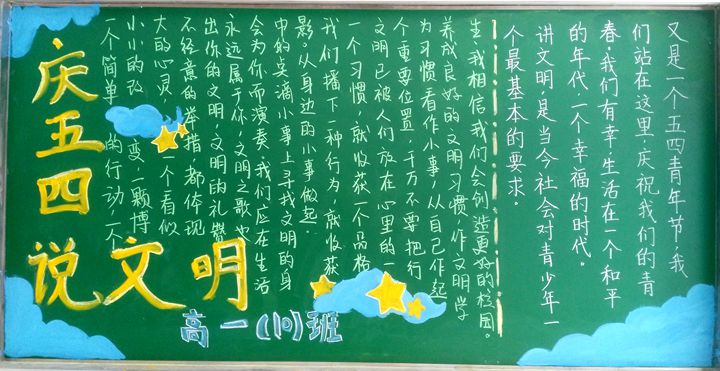 庆五四
说文明
高一(10)班
又是一个五四青年节,我
们站在这里,庆祝我们的青
春,我们有幸,生活在一个和平
的年代,一个幸福的时代。
讲文明,是当今社会对青少年一
个最基本的要求。
一个简单的行动,一个
小小的改变,一颗博
大的心灵,一个看似
不经意的举措,都体现
出你的文明,文明的礼赞
永远属于你,文明之歌也
会为你而演奏,我们应在生活
中的点滴小事上寻找文明的身
影。从身边的小事做起.
我们播下一种行为,就收获
一个习惯,就收获一个品格
文明已被人们放在心里的一
个重要位置,千万不要把行
为习惯看作小事,从自己作起
养成良好的文明习惯,作文明学
生,我相信,我们会创造更好的校园。